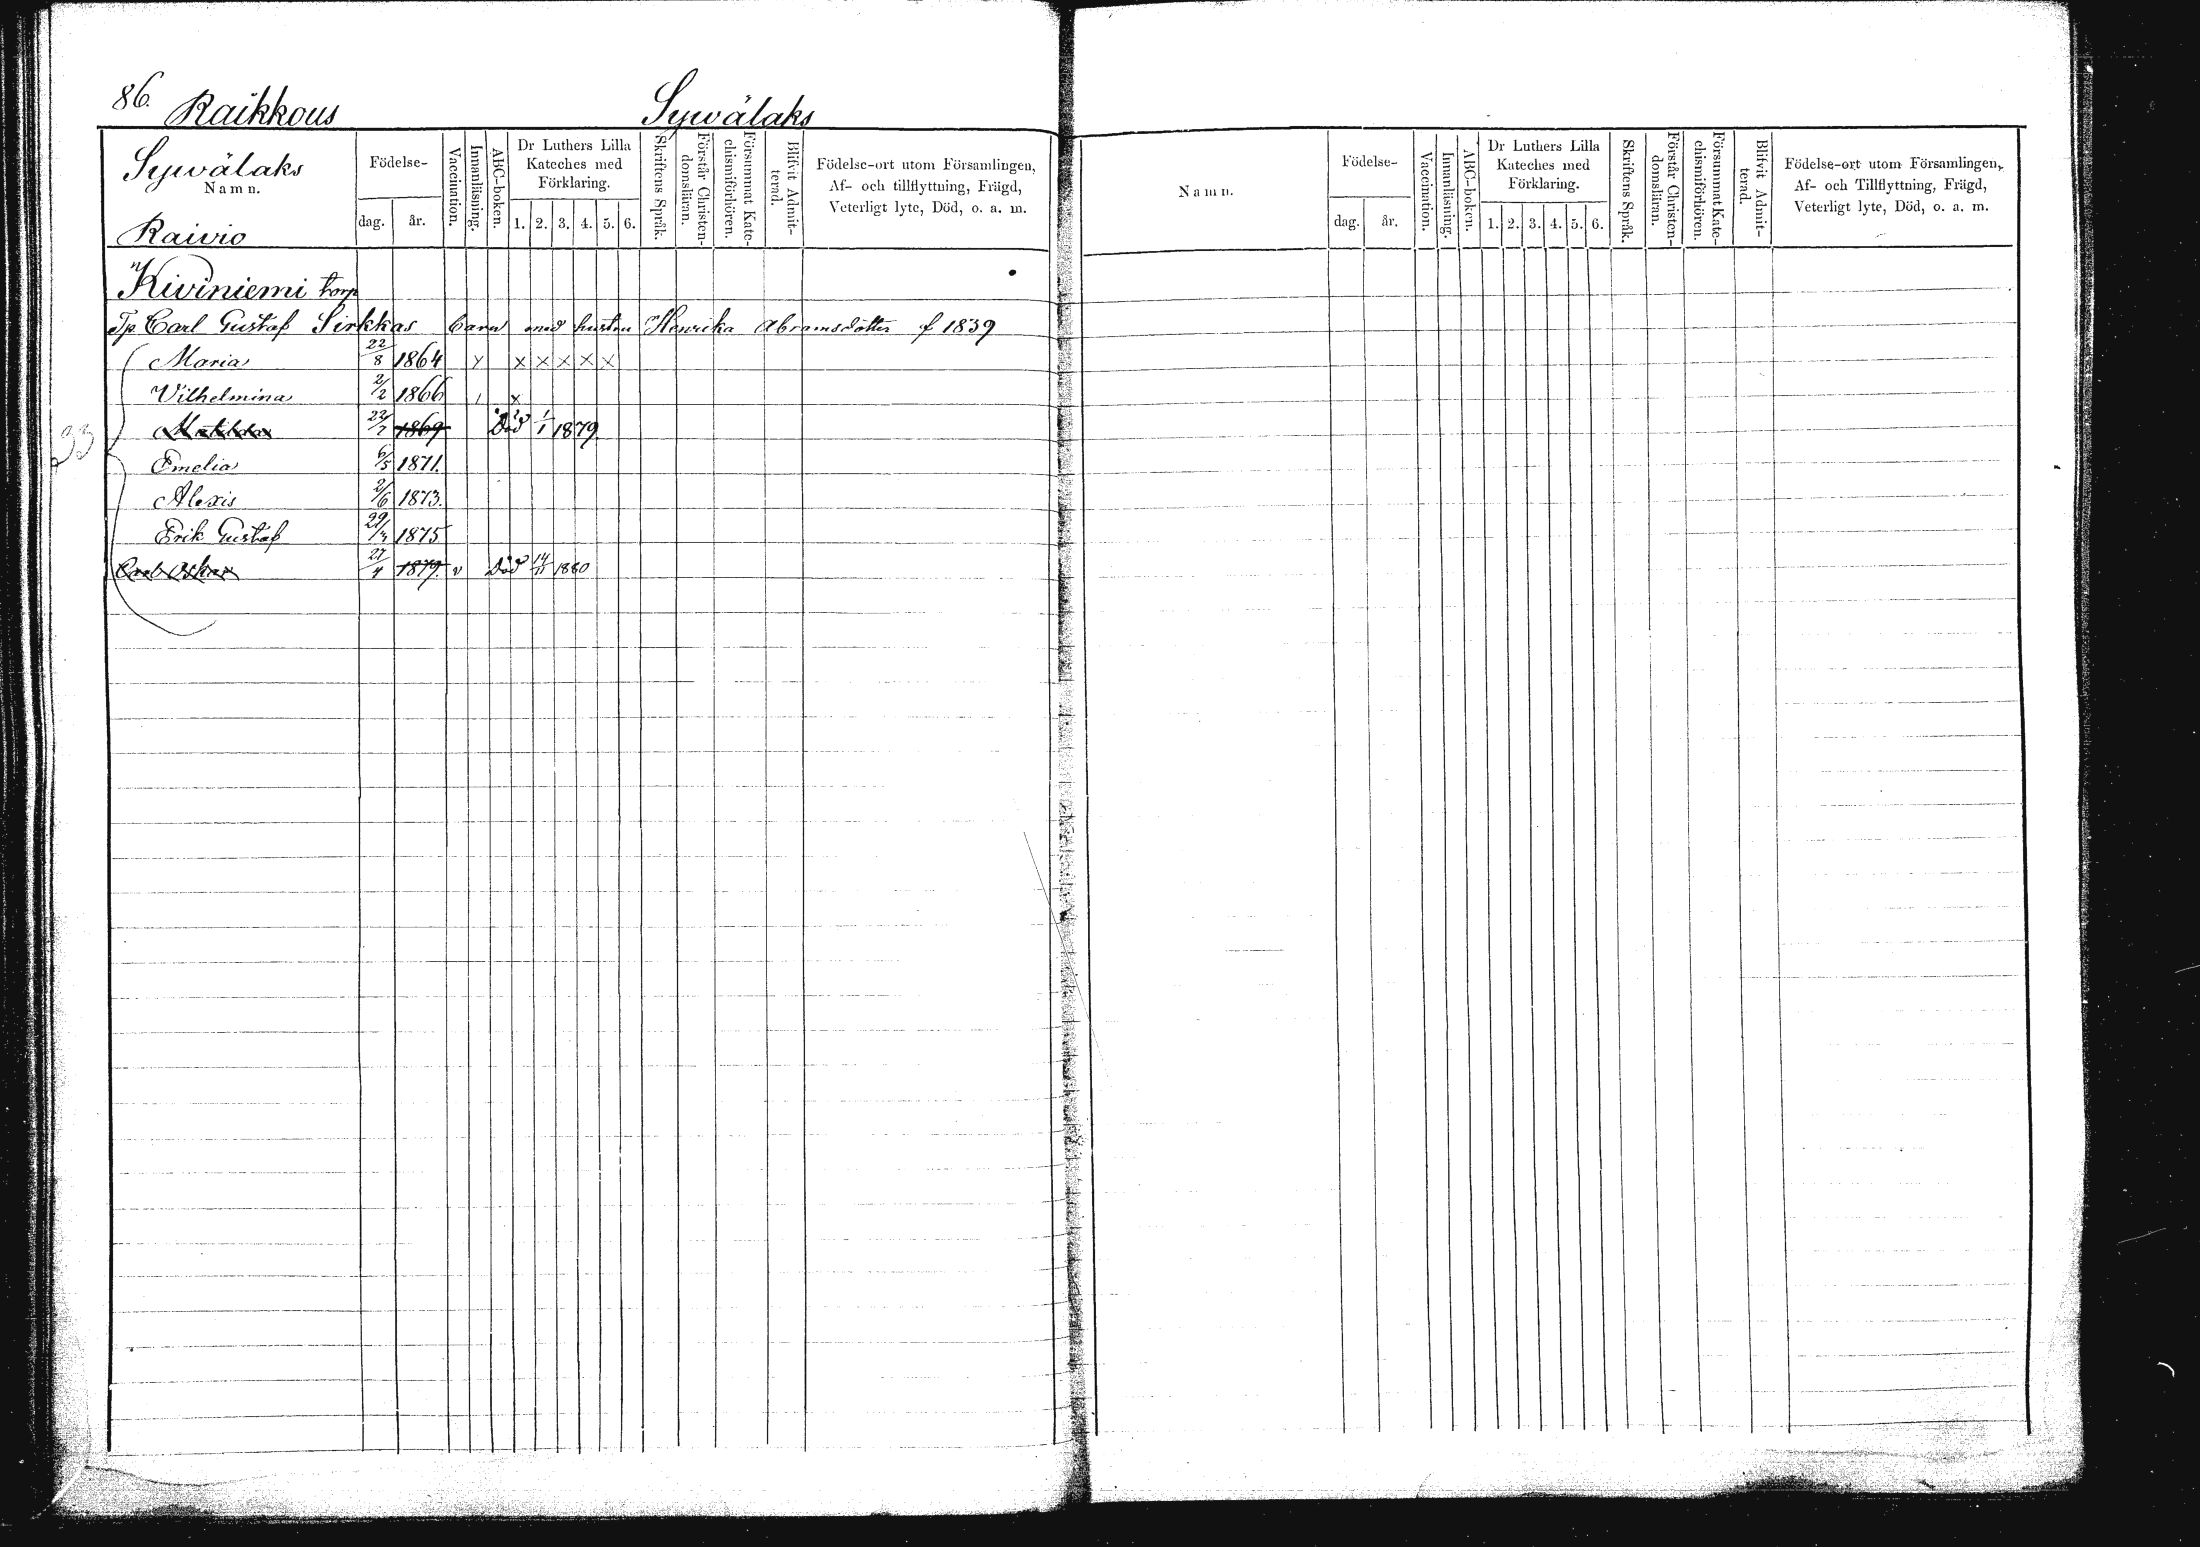 86. Raikkous Sywälaks
Sywälaks
Namn.
Raivio
Födelse-
dag. år.
Vaccination.
Innanläsning.
ABC-boken.
Dr Luthers Lilla
Kateches med
Förklaring.
1. 2. 3. 4. 5. 6.
Skriftens Språk.
Förstår Christen-
domsläran.
Försummat Kate-
chismiförhören.
Blifvit Admit-
terad.
Födelse-ort utom Församlingen,
Af- och tillflyttning, Frägd,
Veterligt lyte, Död, o. a. m.
Kiviniemi torp
Tp. Carl Gustaf Sirkkas barn med hustru Henrika Abramsdotter f 1839
Maria 22/8 1864 x x x x x
Vilhelmina 2/2 1866 x
33
22/7 1869 Död 1/1 1879
Emelia 6/5 1871.
Alexis 2/6 1873.
Erik Gustaf 29/3 1875
Carl Oskar 27/4 1879. v Död 1880
Namn.
Födelse-
dag. år.
Vaccination.
Innanläsning.
ABC-boken.
Dr Luthers Lilla
Kateches med
Förklaring.
1. 2. 3. 4. 5. 6.
Skriftens Språk.
Förstår Christen-
domsläran.
Försummat Kate-
chismiförhören.
Blifvit Admit-
terad.
Födelse-ort utom Församlingen,
Af- och Tillflyttning, Frägd,
Veterligt lyte, Död, o. a. m.